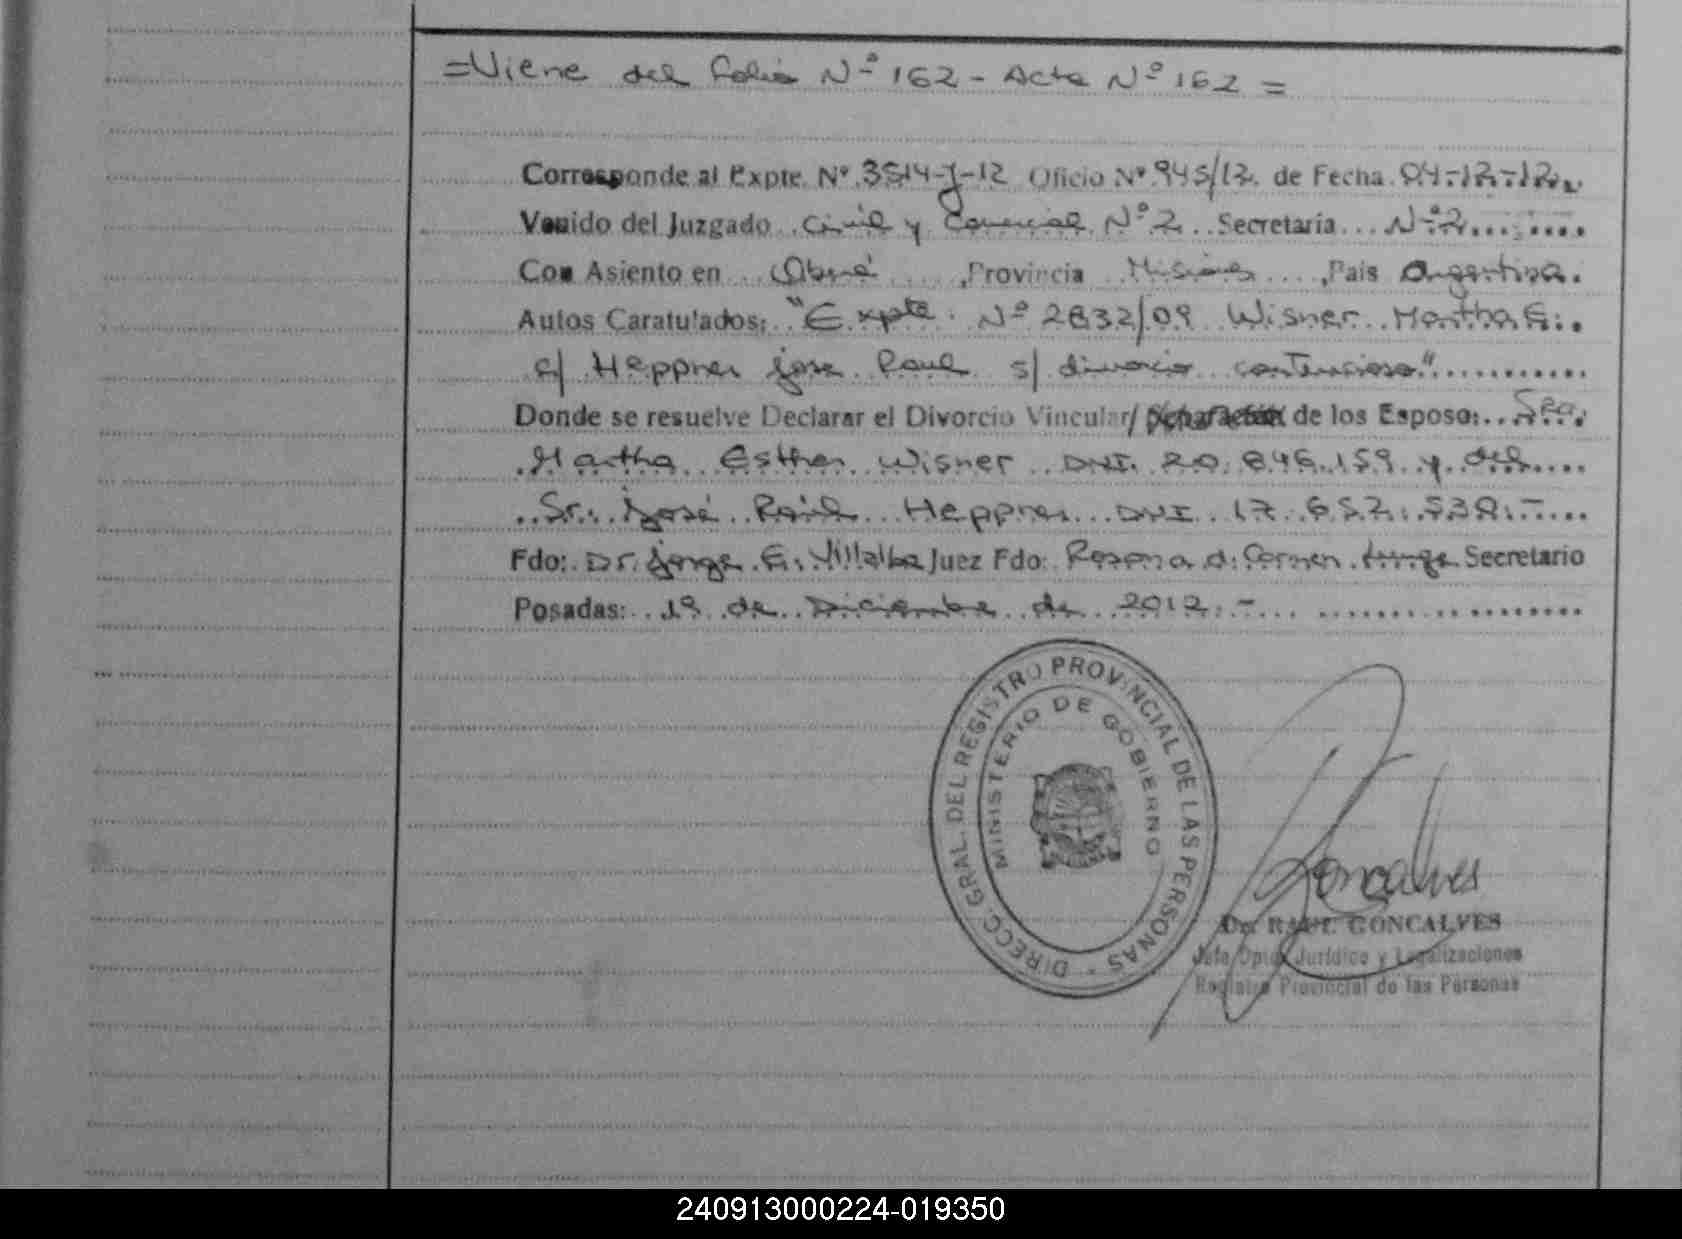 =Viene del folio Nº 162 - Acta Nº 162 =
Corresponde al Expte. Nº 3514-J-12 Oficio Nº 945/12. de Fecha 04-12-12.
Venido del Juzgado Civil y Comercial Nº 2 Secretaria Nº 2
Con Asiento en Oberá, Provincia Misiones, Pais Argentina.
Autos Caratulados: "Expte. Nº 2832/09 Wisner Martha E.
c/ Heppner jose Raul s/ divorcio contencioso"
Donde se resuelve Declarar el Divorcio Vincular/ de los Esposo: Sra.
Martha Esther Wisner DNI. 20.846.159 y del
Sr. José Raúl Heppner DNI 17.652.538.-
Fdo: Dr. Jorge E. Villalba Juez Fdo: d. Carmen Secretario
Posadas: 19 de Diciembre de 2012.-
DIRECC. GRAL. DEL REGISTRO PROVINCIAL DE LAS PERSONAS
MINISTERIO DE GOBIERNO
Goncalves
Dr. RAUL GONCALVES
Jefe Dpto. Jurídico y Legalizaciones
Registro Provincial de las Personas
240913000224-019350